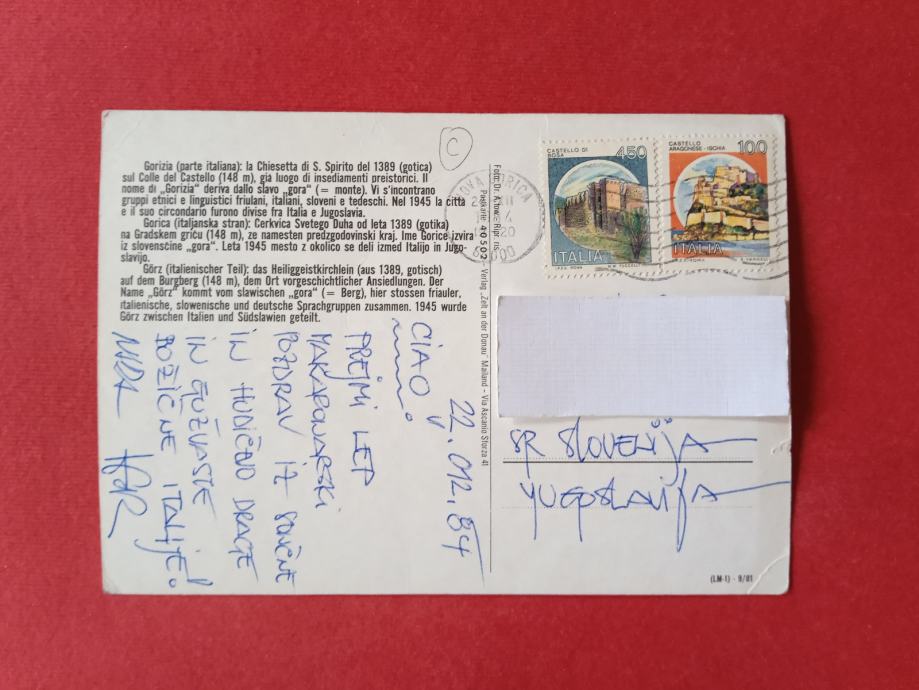 Gorizia (parte italiana): la Chiesetta di S. Spirito del 1389 (gotica)
sul Colle del Castello (148 m), già luogo di insediamenti preistorici. Il
nome di „Gorizia" deriva dallo slavo „gora" (= monte). Vi s'incontrano
gruppi etnici e linguistici friulani, italiani, sloveni e tedeschi. Nel 1945 la città
e il suo circondario furono divise fra Italia e Jugoslavia.
Gorica (italjanska stran): Cerkvica Svetega Duha od leta 1389 (gotika)
na Gradskem griču (148 m), ze namesten predzgodovinski kraj. Ime Gorice izvira
iz slovenscine „gora". Leta 1945 mesto z okolico se deli izmed Italijo in Jugo-
slavijo.
Görz (italienischer Teil): das Heiliggeistkirchlein (aus 1389, gotisch)
auf dem Burgberg (148 m), dem Ort vorgeschichtlicher Ansiedlungen. Der
Name „Görz" kommt vom slawischen „gora" (= Berg), hier stossen friauler,
italienische, slowenische und deutsche Sprachgruppen zusammen. 1945 wurde
Görz zwischen Italien und Südslawien geteilt.
C
22.012.84
CIAO
PREJMI LEP
MAKARONARSKI
POZDRAV IZ SONČNE
IN HUDIČEVO DRAGE
IN GUŽVASTE
BOŽIČNE ITALIJE!
Foto: Dr. A.
Postkarte 40502 - Verlag „Zelt an der Donau" Mailand - Via Ascanio Sforza 41
NOVA GORICA
CASTELLO DI
BOSA
450
ITALIA
CASTELLO
ARAGONESE - ISCHIA
100
ITALIA
SR SLOVENIJA
YUGOSLAVIJA
(LM-1) - 9/81